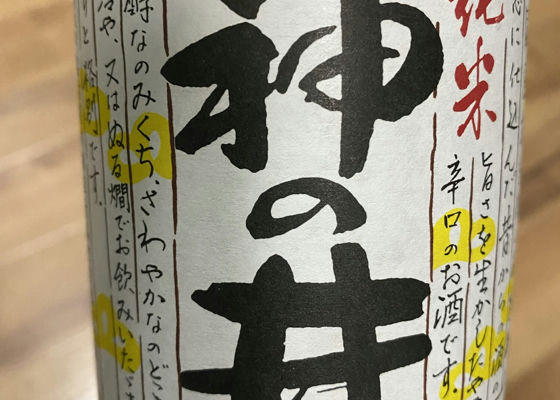 心に仕込んだ昔から
旨さを生かしたや
辛口のお酒です。
純米
神の井
醇なのみくち、さわやかなのどご
冷や、又はぬる燗でお飲みしただ
りと格別です。